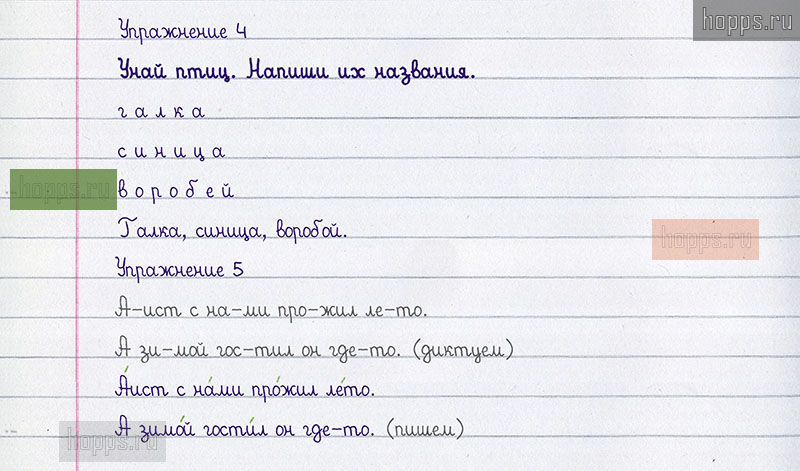 hopps.ru
Упражнение 4
Унай птиц. Напиши их названия.
г а л к а
с и н и ц а
hopps.ru
в о р о б е й
Галка, синица, воробой.
hopps.ru
Упражнение 5
А-ист с на-ми про-жил ле-то.
А зи-мой гос-тил он где-то. (диктуем)
А́ист с на́ми про́жил ле́то.
А зимо́й гости́л он где-то. (пишем)
hopps.ru